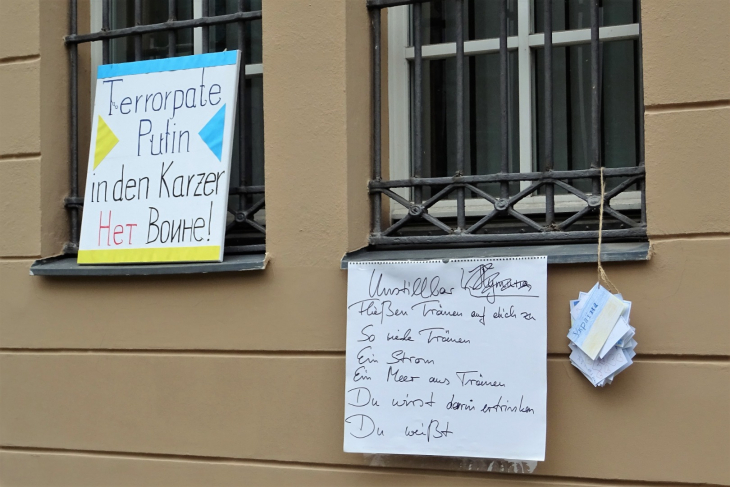 Terrorpate
Putin
in den Karzer
Нет Воине!
Unstillbar
Fließen Tränen auf dich zu
So viele Tränen
Ein Strom
Ein Meer aus Tränen
Du wirst darin ertrinken
Du weißt